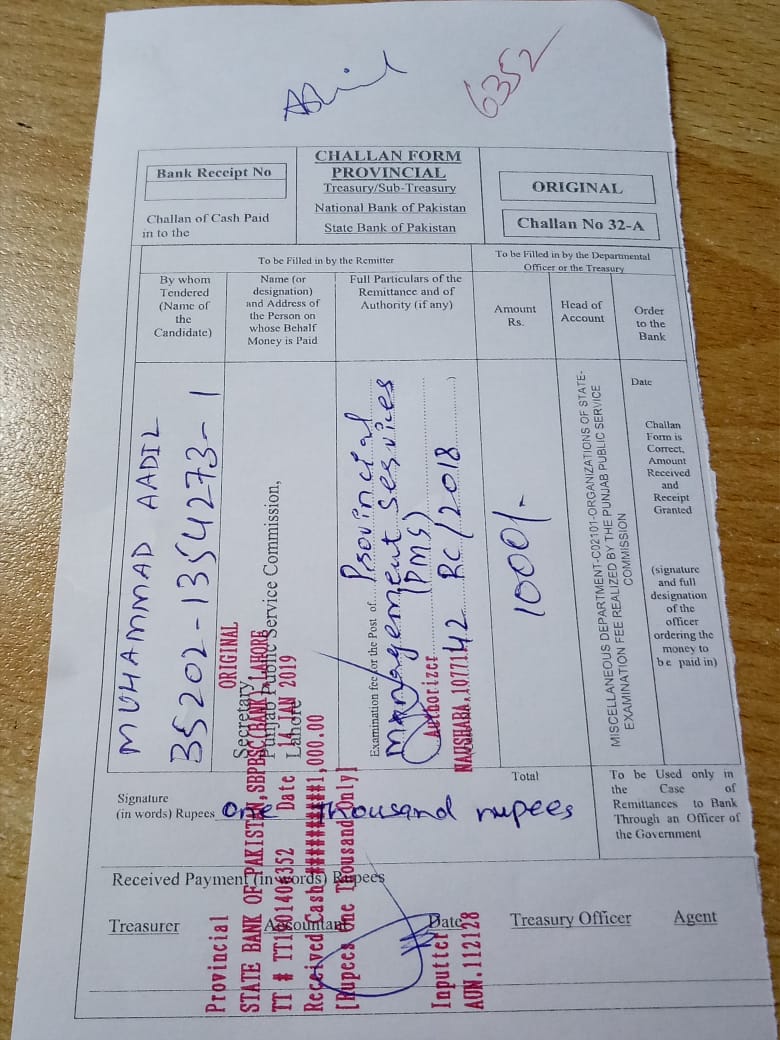 Adil
6352
Bank Receipt No
Challan of Cash Paid
in to the
CHALLAN FORM
PROVINCIAL
Treasury/Sub-Treasury
National Bank of Pakistan
State Bank of Pakistan
ORIGINAL
Challan No 32-A
To be Filled in by the Remitter
To be Filled in by the Departmental
Officer or the Treasury
By whom
Tendered
(Name of
the
Candidate)
Name (or
designation)
and Address of
the Person on
whose Behalf
Money is Paid
Full Particulars of the
Remittance and of
Authority (if any)
Amount
Rs.
Head of
Account
Order
to the
Bank
MUHAMMAD AADIL
35202-1354273-1
Secretary,
Punjab Public Service Commission,
Lahore
Examination fee for the Post of Provincial
Management Services
(PMS)
42 RC/2018
1000/-
MISCELLANEOUS DEPARTMENT-C02101-ORGANIZATIONS OF STATE-
EXAMINATION FEE REALIZED BY THE PUNJAB PUBLIC SERVICE
COMMISSION
Date
Challan
Form is
Correct,
Amount
Received
and
Receipt
Granted
(signature
and full
designation
of the
officer
ordering the
money to
be paid in)
Signature
(in words) Rupees one thousand rupees
Total
To be Used only in
the Case of
Remittances to Bank
Through an Officer of
the Government
Received Payment (in words) Rupees
Treasurer
Accountant
Date
Treasury Officer
Agent
Provincial ORIGINAL
STATE BANK OF PAKISTAN,SBPBSC(BANK),LAHORE
Date JAN 2019
Received Cash 1,000.00
[Rupees One Thousand Only]
Inputter Authorizer
AUN.112128